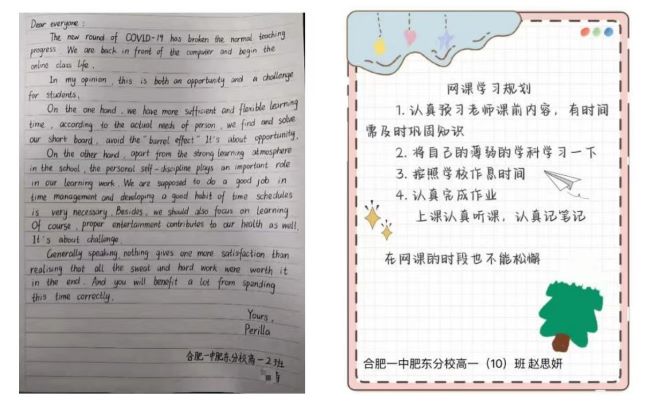 Dear everyone:
The new round of COVID-19 has broken the normal teaching
progress. We are back in front of the computer and begin the
online class life.
In my opinion, this is both an opportunity and a challenge
for students.
On the one hand, we have more sufficient and flexible learning
time, according to the actual needs of person, we find and solve
our short board, avoid the "barrel effect" It's about opportunity.
On the other hand, apart from the strong learning atmosphere
in the school, the personal self-discipline plays an important role
in our learning work. We are supposed to do a good job in
time management and developing a good habit of time schedules
is very necessary. Besides, we should also focus on learning
Of course, proper entertainment contributes to our health as well.
It's about challenge.
Generally speaking, nothing gives one more satisfaction than
realising that all the sweat and hard work were worth it
in the end. And you will benefit a lot from spending
this time correctly.
Yours,
Perilla
合肥一中肥东分校高一2班
网课学习规划
1. 认真预习老师课前内容，有时间
需及时巩固知识
2. 将自己的薄弱的学科学习一下
3. 按照学校作息时间
4. 认真完成作业
上课认真听课，认真记笔记
在网课的时段也不能松懈
合肥一中肥东分校高一（10）班 赵思妍